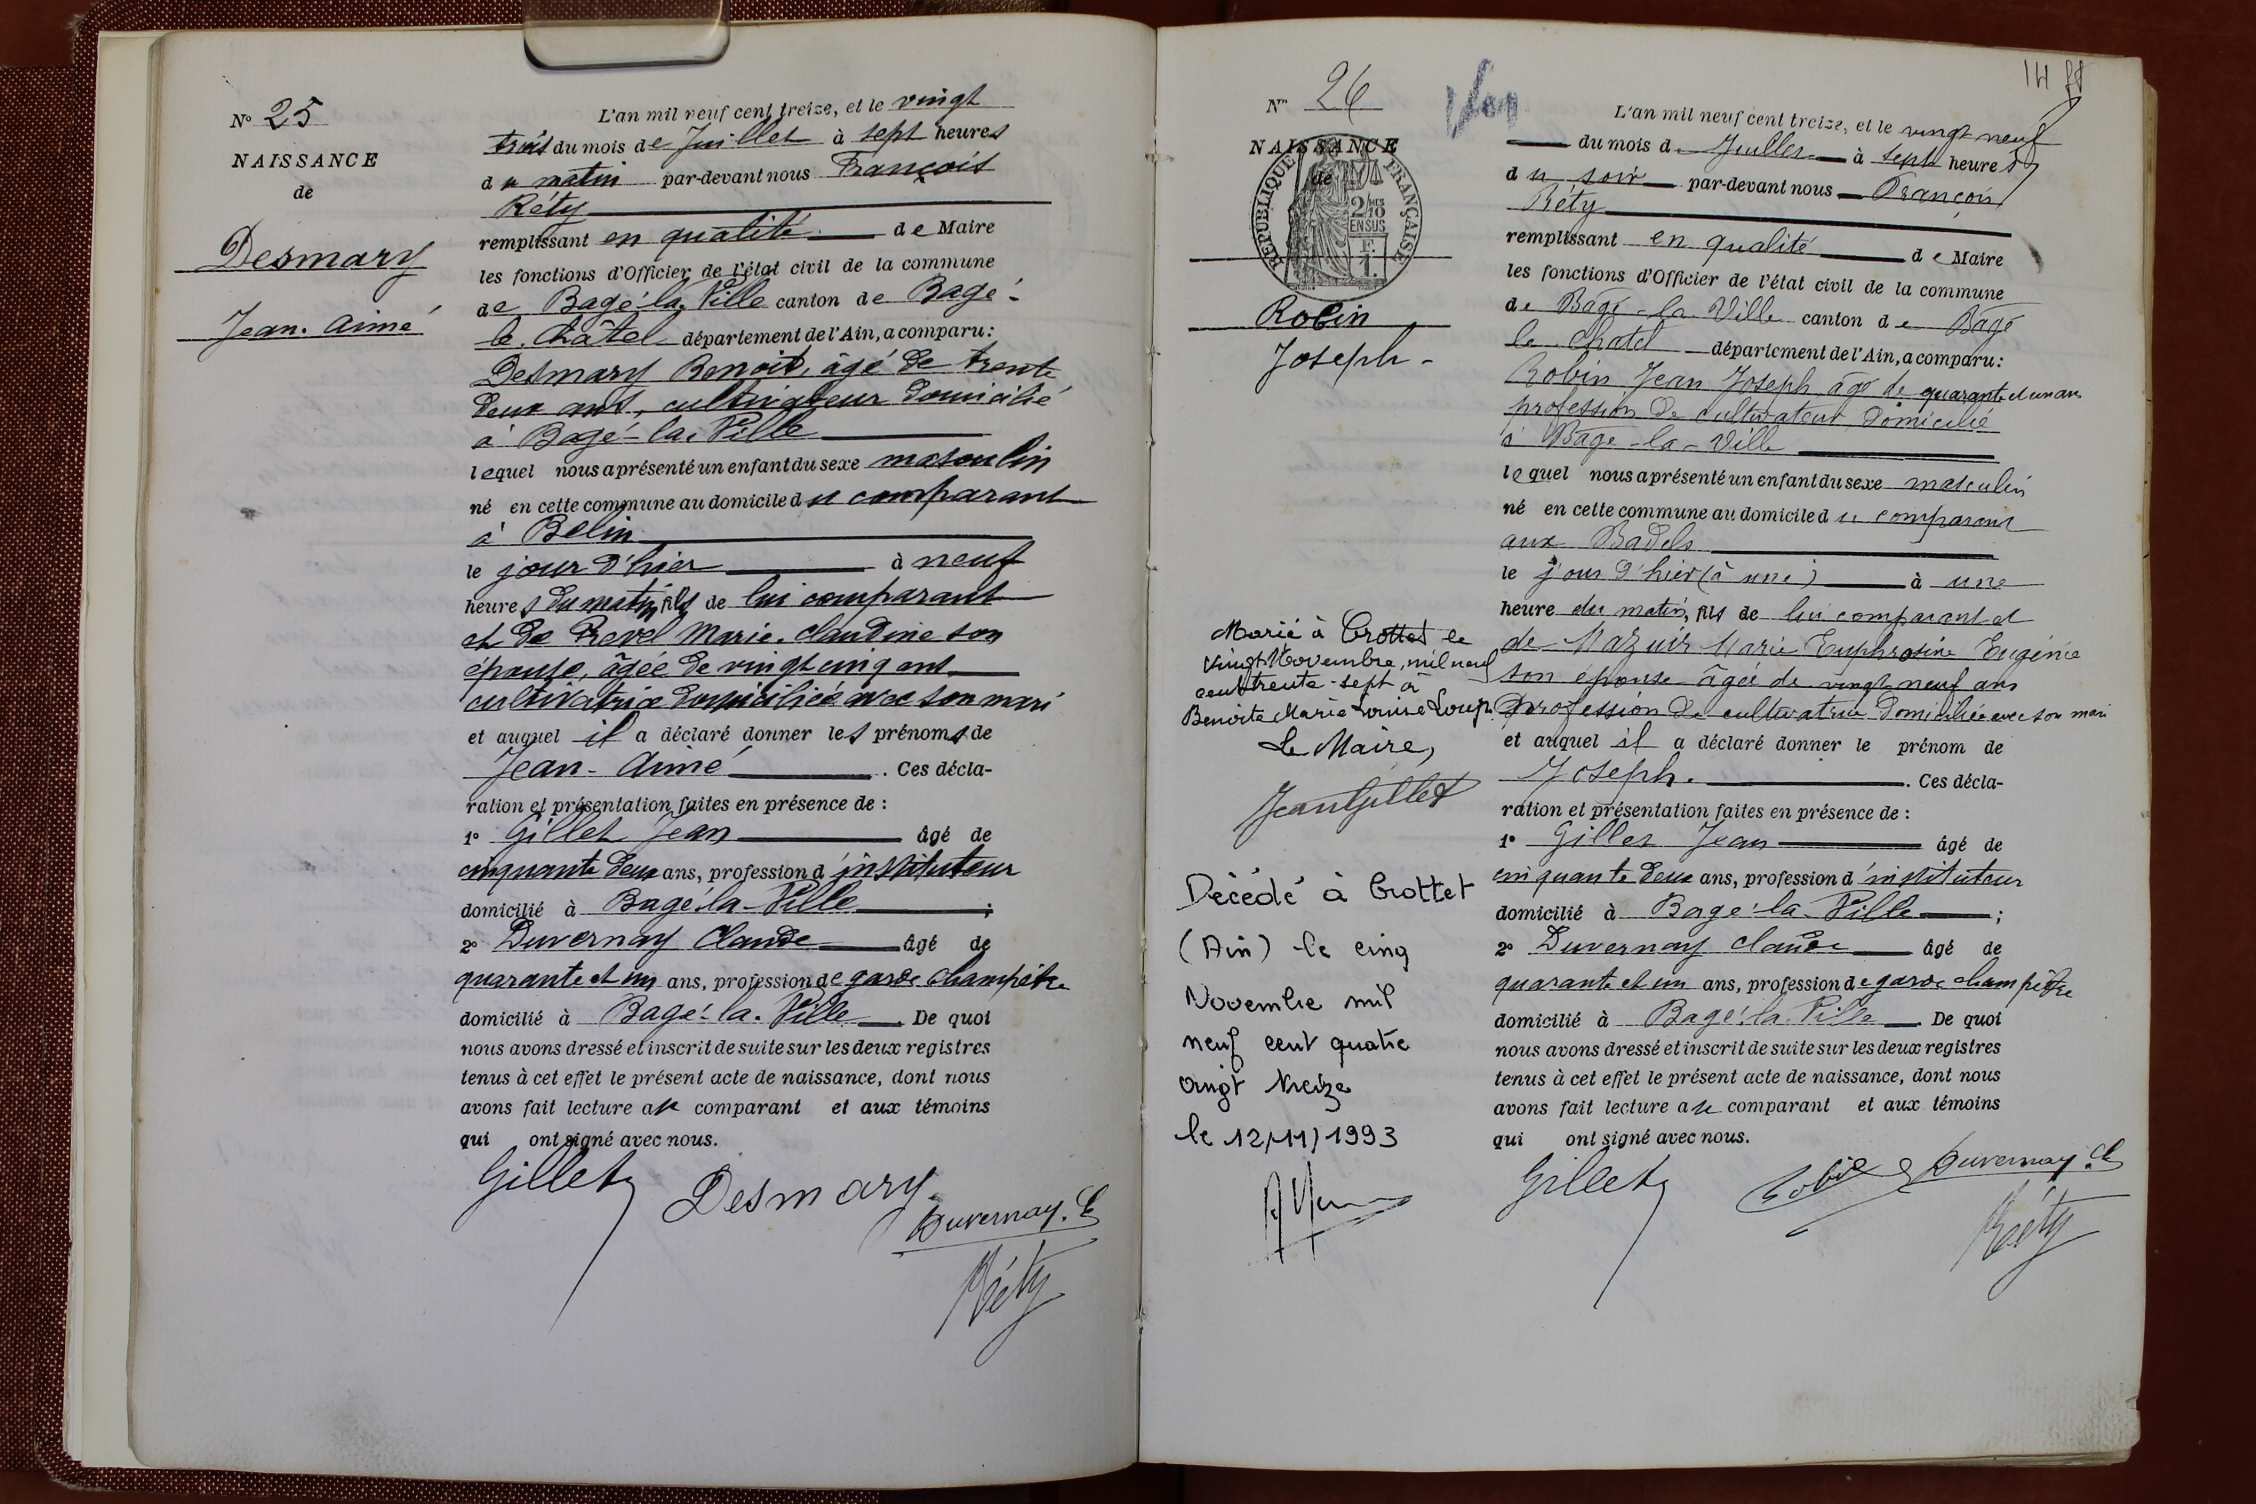 N° 25
NAISSANCE
de
Desmary
Jean-Aimé
L'an mil neuf cent treize, et le vingt
trois du mois de Juillet à sept heures
du matin par-devant nous François
Réty
remplissant en qualité de Maire
les fonctions d'Officier de l'état civil de la commune
de Bagé-la-Ville canton de Bagé-
le-Châtel département de l'Ain, a comparu:
Desmary Benoit, âgé de trente
deux ans, cultivateur domicilié
à Bagé-la-Ville
lequel nous a présenté un enfant du sexe masculin
né en cette commune au domicile du comparant
à Belin
le jour d'hier à neuf
heures du matin, fils de lui comparant
et de Revel Marie-Claudine son
épouse, âgée de vingt cinq ans
cultivatrice domiciliée avec son mari
et auquel il a déclaré donner les prénoms de
Jean-Aimé. Ces décla-
ration et présentation faites en présence de :
1° Gillet Jean âgé de
cinquante deux ans, profession d'instituteur
domicilié à Bagé-la-Ville ;
2° Duvernay Claude âgé de
quarante et un ans, profession de garde champêtre
domicilié à Bagé-la-Ville. De quoi
nous avons dressé et inscrit de suite sur les deux registres
tenus à cet effet le présent acte de naissance, dont nous
avons fait lecture au comparant et aux témoins
qui ont signé avec nous.
Gillet Desmary
Duvernay. C
Réty
14
N° 26
NAISSANCE
de
RÉPUBLIQUE FRANÇAISE
2/10
EN SUS
F.
1.
Robin
Joseph-
L'an mil neuf cent treize, et le vingt neuf
du mois de Juillet à sept heures
du soir par-devant nous François
Réty
remplissant en qualité de Maire
les fonctions d'Officier de l'état civil de la commune
de Bagé-la-Ville canton de Bagé
le Chatel département de l'Ain, a comparu:
Robin Jean Joseph, âgé de quarante et un ans
profession de cultivateur domicilié
à Bagé-la-Ville
lequel nous a présenté un enfant du sexe masculin
né en cette commune au domicile du comparant
aux Badels
le jour d'hier (à une) à une
heure du matin, fils de lui comparant et
de Mazuir Marie Euphrosine Eugénie
son épouse âgée de vingt neuf ans
profession de cultivatrice domiciliée avec son mari
et auquel il a déclaré donner le prénom de
Joseph. Ces décla-
ration et présentation faites en présence de :
1° Gillet Jean âgé de
cinquante deux ans, profession d'instituteur
domicilié à Bagé-la-Ville ;
2° Duvernay Claude âgé de
quarante et un ans, profession de garde champêtre
domicilié à Bagé-la-Ville. De quoi
nous avons dressé et inscrit de suite sur les deux registres
tenus à cet effet le présent acte de naissance, dont nous
avons fait lecture au comparant et aux témoins
qui ont signé avec nous.
Gillet Robin Duvernay. C
Réty
Marié à Crottet le
vingt Novembre, mil neuf
cent trente-sept à
Benoite Marie Louise Loup.
Le Maire,
Jean Gillet
Décédé à Crottet
(Ain) le cinq
Novembre mil
neuf cent quatre
vingt treize
le 12/11/1993